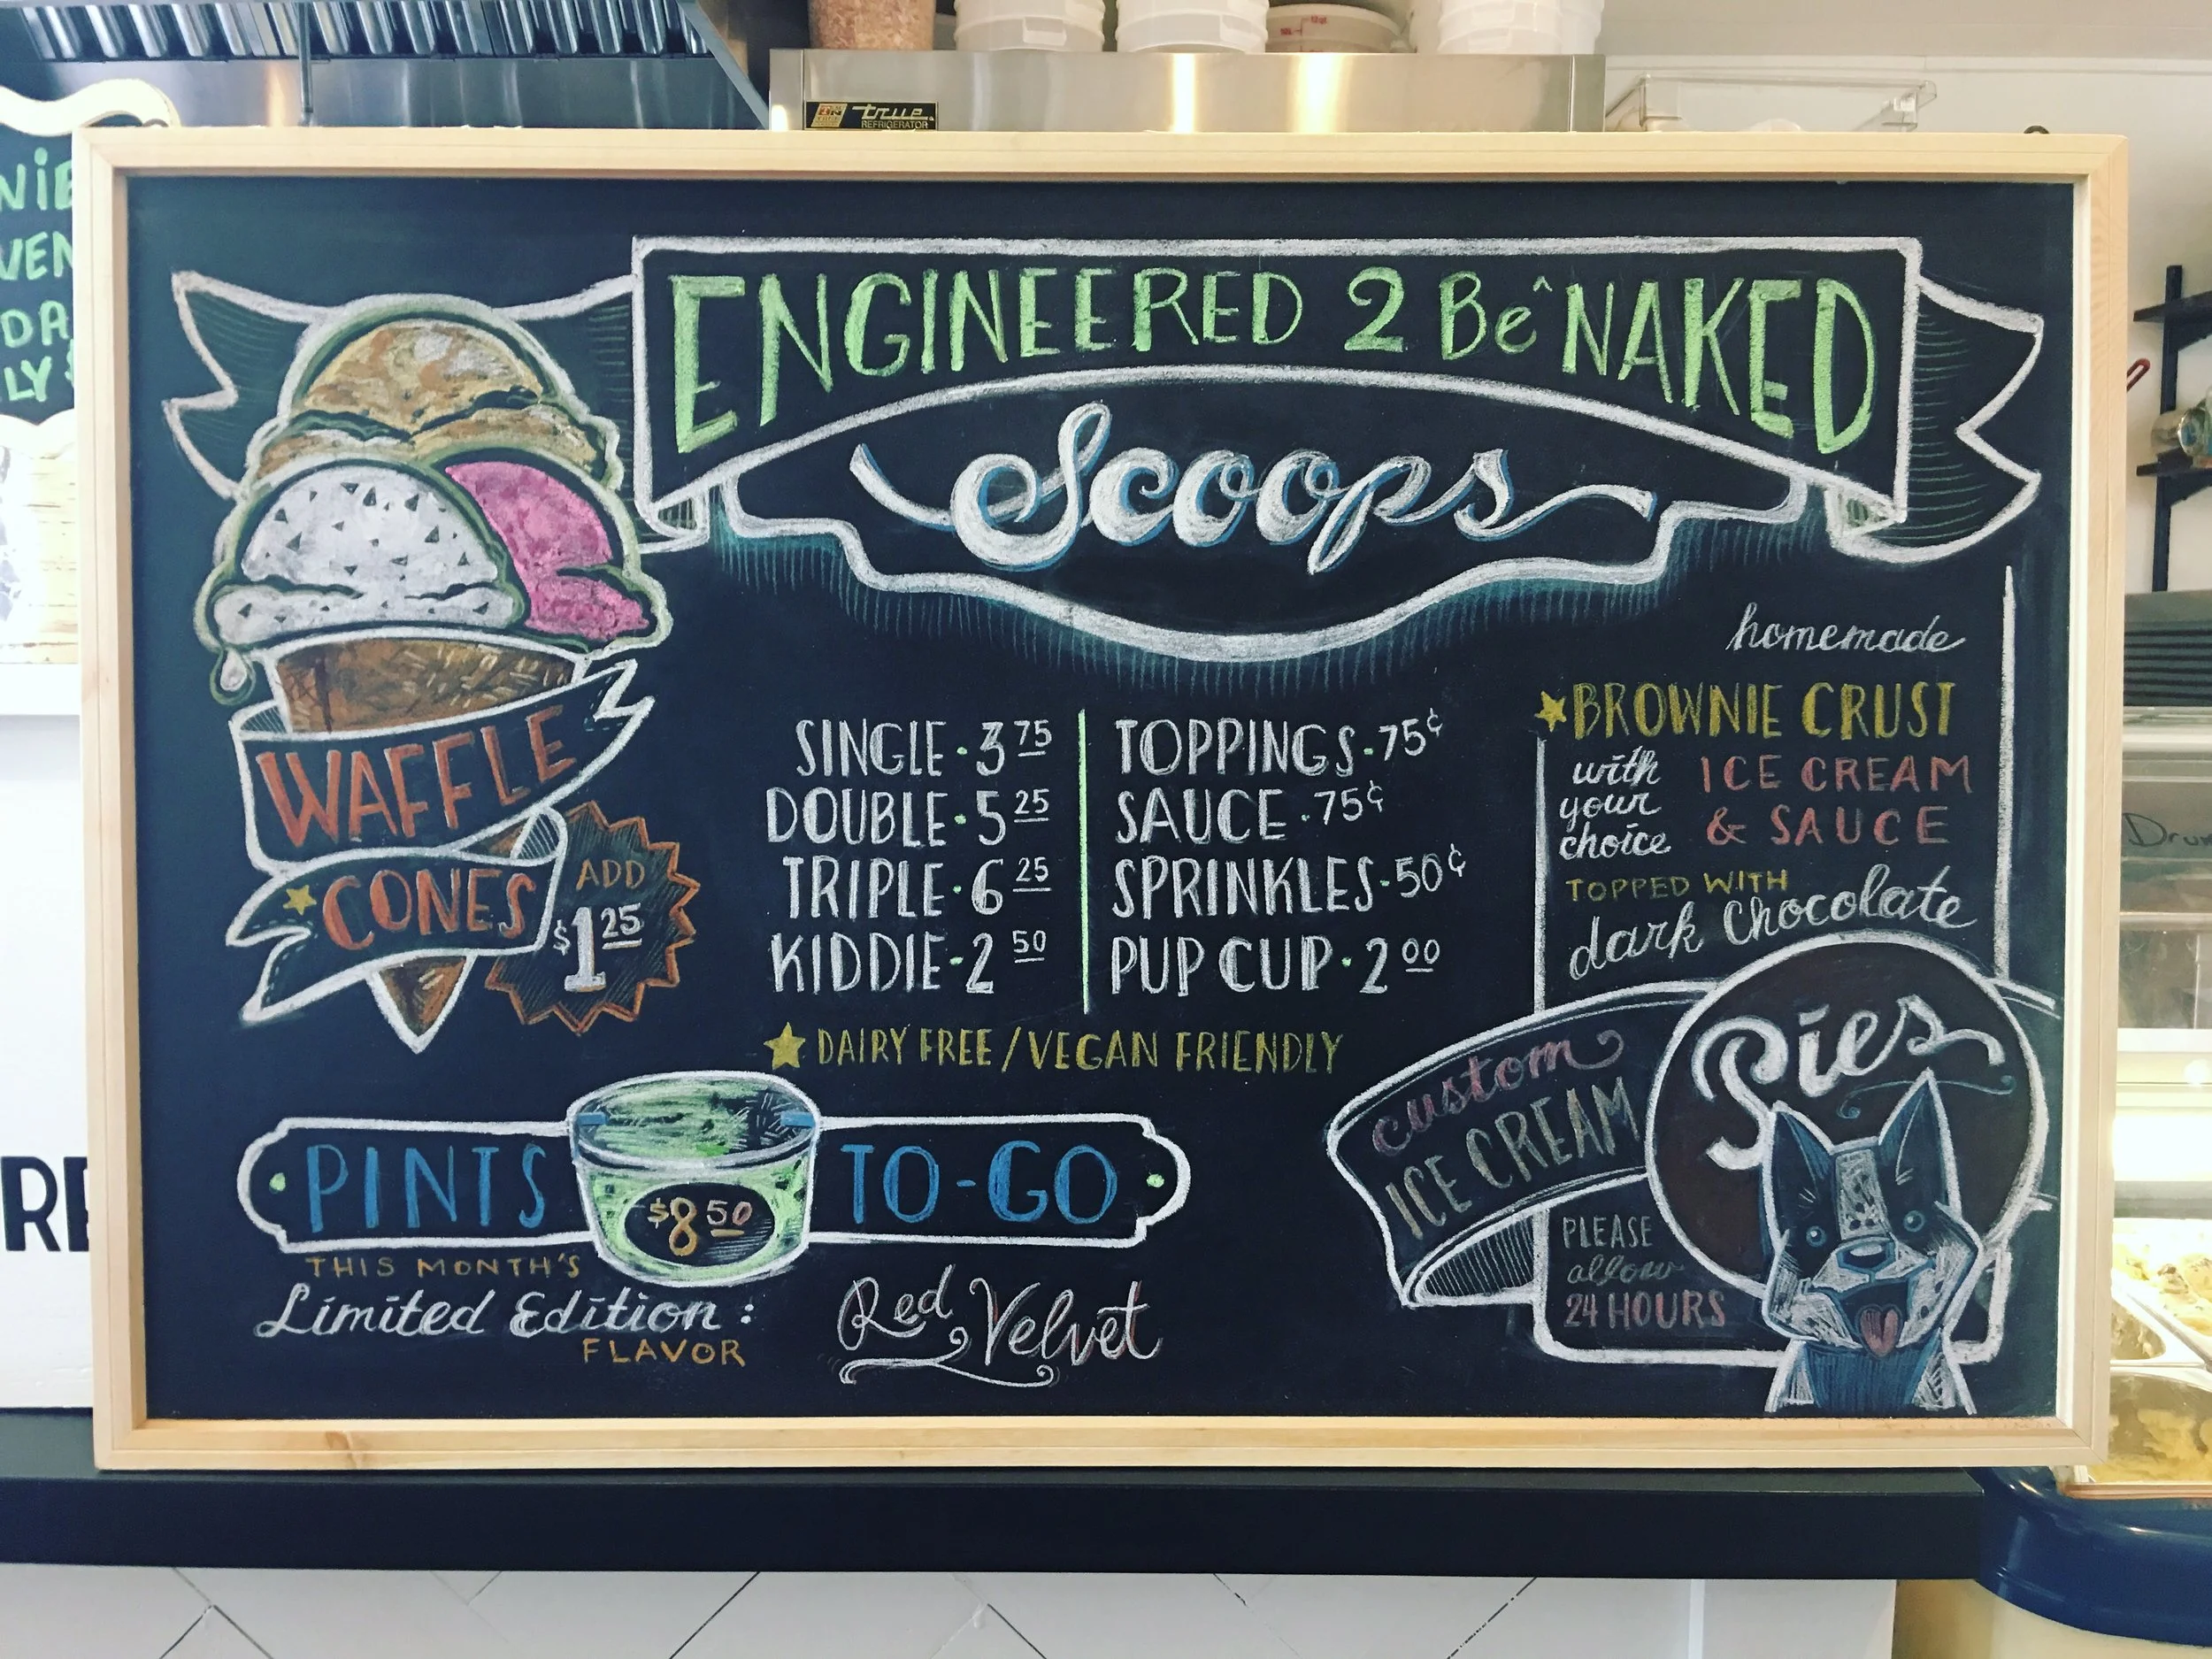 true
REFRIGERATOR
ENGINEERED 2 Be^ NAKED
Scoops
WAFFLE
CONES
ADD
$1 25
SINGLE · 3 75
DOUBLE · 5 25
TRIPLE · 6 25
KIDDIE - 2 50
TOPPINGS - 75¢
SAUCE · 75¢
SPRINKLES - 50¢
PUP CUP · 2 00
DAIRY FREE / VEGAN FRIENDLY
homemade
BROWNIE CRUST
with your choice
ICE CREAM
& SAUCE
TOPPED WITH
dark Chocolate
custom
ICE CREAM
Pies
PLEASE
allow
24 HOURS
PINTS
$8 50
TO-GO
THIS MONTH'S
Limited Edition:
FLAVOR
Red Velvet